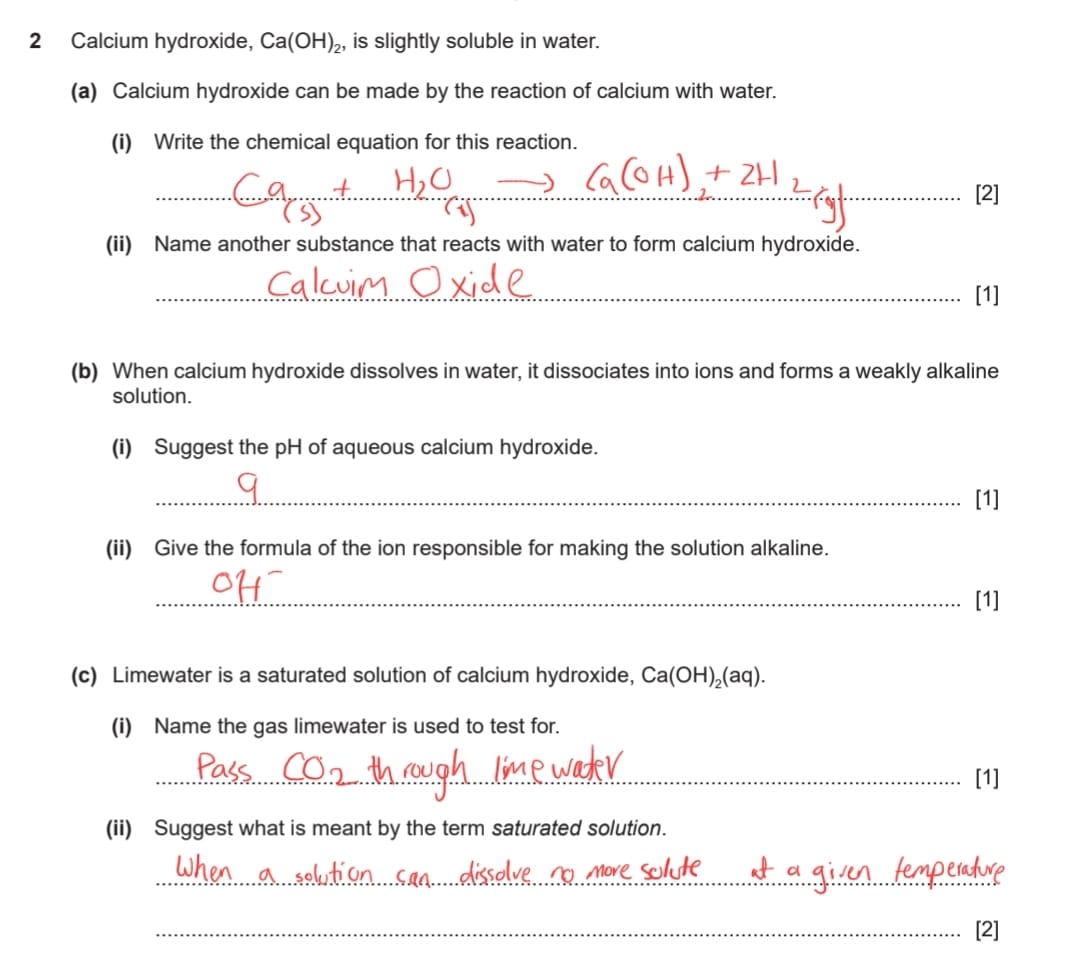 2 Calcium hydroxide, Ca(OH)₂, is slightly soluble in water.
(a) Calcium hydroxide can be made by the reaction of calcium with water.
(i) Write the chemical equation for this reaction.
Ca(s) + H₂O(l) → Ca(OH)₂ + 2H₂(g) [2]
(ii) Name another substance that reacts with water to form calcium hydroxide.
Calcuim Oxide [1]
(b) When calcium hydroxide dissolves in water, it dissociates into ions and forms a weakly alkaline
solution.
(i) Suggest the pH of aqueous calcium hydroxide.
9 [1]
(ii) Give the formula of the ion responsible for making the solution alkaline.
OH⁻ [1]
(c) Limewater is a saturated solution of calcium hydroxide, Ca(OH)₂(aq).
(i) Name the gas limewater is used to test for.
Pass CO₂ through limewater [1]
(ii) Suggest what is meant by the term saturated solution.
When a solution can dissolve no more solute at a given temperature
[2]